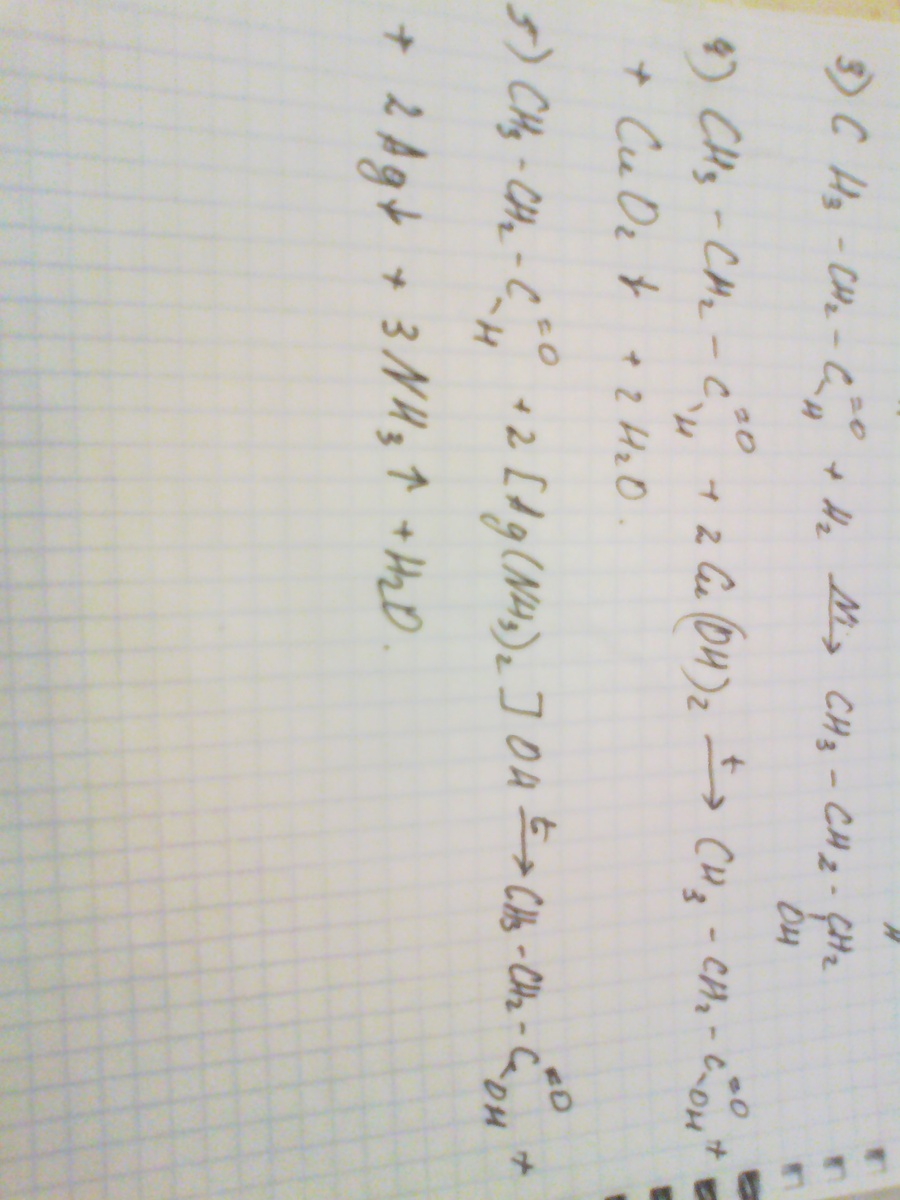 3) CH₃ - CH₂ - C =O H + H₂ Ni→ CH₃ - CH₂ - CH₂ OH
4) CH₃ - CH₂ - C =O H + 2 Cu(OH)₂ t→ CH₃ - CH₂ - C =O OH +
+ CuO₂↓ + 2H₂O.
5) CH₃ - CH₂ - C =O H + 2[Ag(NH₃)₂]OH t→ CH₃ - CH₂ - C =O OH +
+ 2Ag↓ + 3NH₃↑ + H₂O.